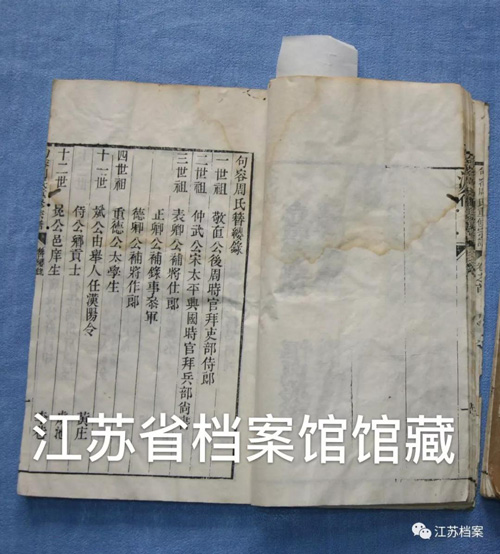 句容周氏簪纓錄
一世祖　敬直公後周時官拜吏部侍郎
二世祖　仲武公宋太平興國時官拜兵部尚書
三世祖　表卿公補將仕郎
正卿公補錄事參軍
德卿公補將作郎
四世祖　重德公太學生
十一世　斌公由舉人任漢陽令
倚公鄉貢士
十二世　昆公邑庠生　黃庄
江苏省档案馆馆藏
江苏档案